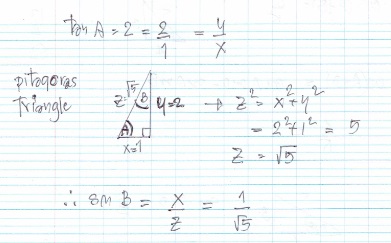 tan A = 2 = 2/1 = y/x
pitagoras
Triangle
z √5 B y=2 → z² = x²+y²
A = 2²+1² = 5
x=1 z = √5
∴ sin B = x/z = 1/√5